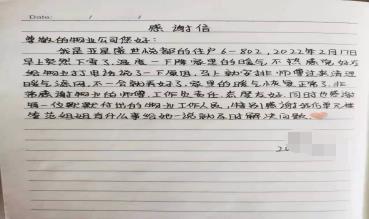 Date: / /
感谢信
尊敬的物业公司您好:
我是亚星盛世悦都的住户6-802,2022年2月17日
早上突然下雪了,温度一下降家里的暖气不热感觉好冷
给物业打电话说了一下原因,马上就安排师傅过来清理
暖气滤网,不一会就弄好了,家里的暖气恢复正常了,非
常感谢物业的师傅,工作负责任,态度友好,同时也感谢
每一位默默付出的物业工作人员,特别感谢6号化单元
姐姐有什么事给她一说就及时解决问题。